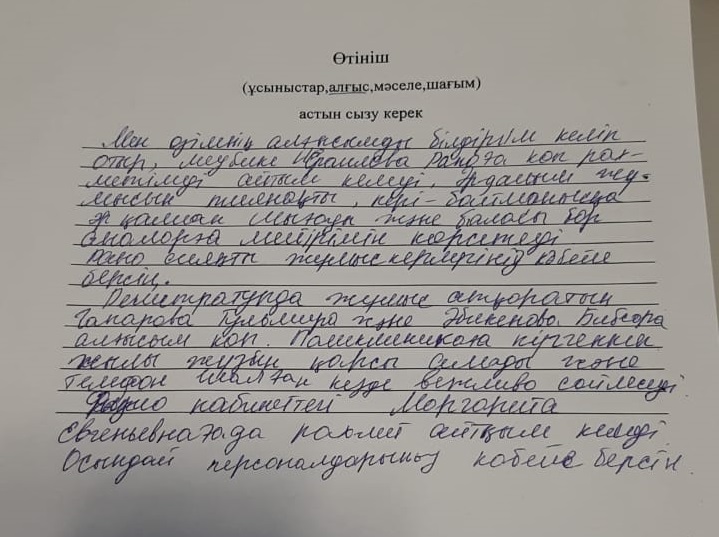 Өтініш
(ұсыныстар,алғыс,мәселе,шағым)
астын сызу керек
Мен өзімнің алғысымды білдіргім келіп
отыр, медбике Раноға көп рах-
метімді айтқым келеді. Әрдайым жұ-
мысын тиянақты, кәрі-
қалмай және баласы бар
аналарға мейірімін көрсетеді
Рано сияқты жұмыскерлеріңіз көбейе
берсін.
Регистратурада жұмыс атқаратын
Гапарова Гульмира және Әбикенова Бибігүра
алғысым көп. Поликлиникаға кіргенде
жылы жүзбен қарсы алады және
телефон шалған кезде вежливо сөйлеседі.
кабинеттегі Маргарита
Евгеньевнаға да рахмет айтқым келеді
Осындай персоналдарыңыз көбейе берсін.